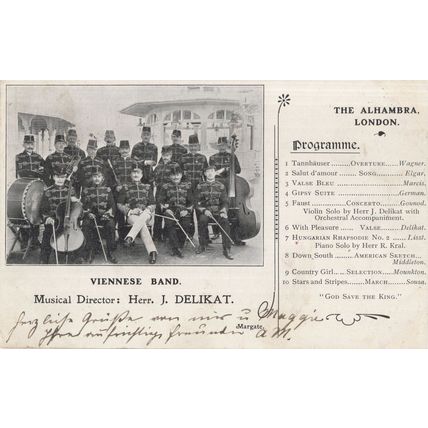 THE ALHAMBRA,
LONDON.
Programme.
1 Tannhäuser ........OVERTURE...Wagner.
2 Salut d'amour ...... SONG...Elgar.
3 VALSE BLEU ..................Margis.
4 GIPSY SUITE ................German.
5 Faust ..........CONCERTO....Gounod.
Violin Solo by Herr J. Delikat with
Orchestral Accompaniment.
6 With Pleasure ...... VALSE...Delikat.
7 HUNGARIAN RHAPSODIE NO. 2 ......Liszt.
Piano Solo by Herr R. Kral.
8 Down South ...... AMERICAN SKETCH...
Middleton.
9 Country Girl... SELECTION...Monckton.
10 Stars and Stripes......MARCH......Sousa.
"GOD SAVE THE KING."
VIENNESE BAND.
Musical Director: Herr. J. DELIKAT.
Margate.
Herzliche Grüße von mir u. Maggie
Ihre aufrichtige Freundin
A.M.